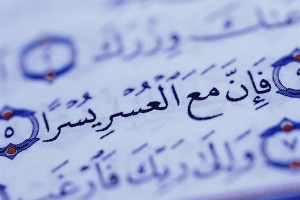 عَنكَ وِزْرَكَ
فَإِنَّ مَعَ ٱلْعُسْرِ يُسْرًا ٥
وَإِلَىٰ رَبِّكَ فَٱرْغَب